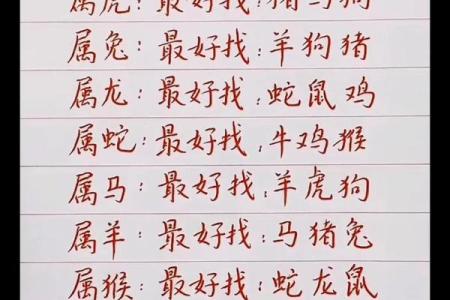 属虎：最好找：猪马狗
属兔：最好找：羊狗猪
属龙：最好找：蛇鼠鸡
属蛇：最好找：牛鸡猴
属马：最好找：羊虎狗
属羊：最好找：马猪兔
属猴：最好找：蛇龙鼠